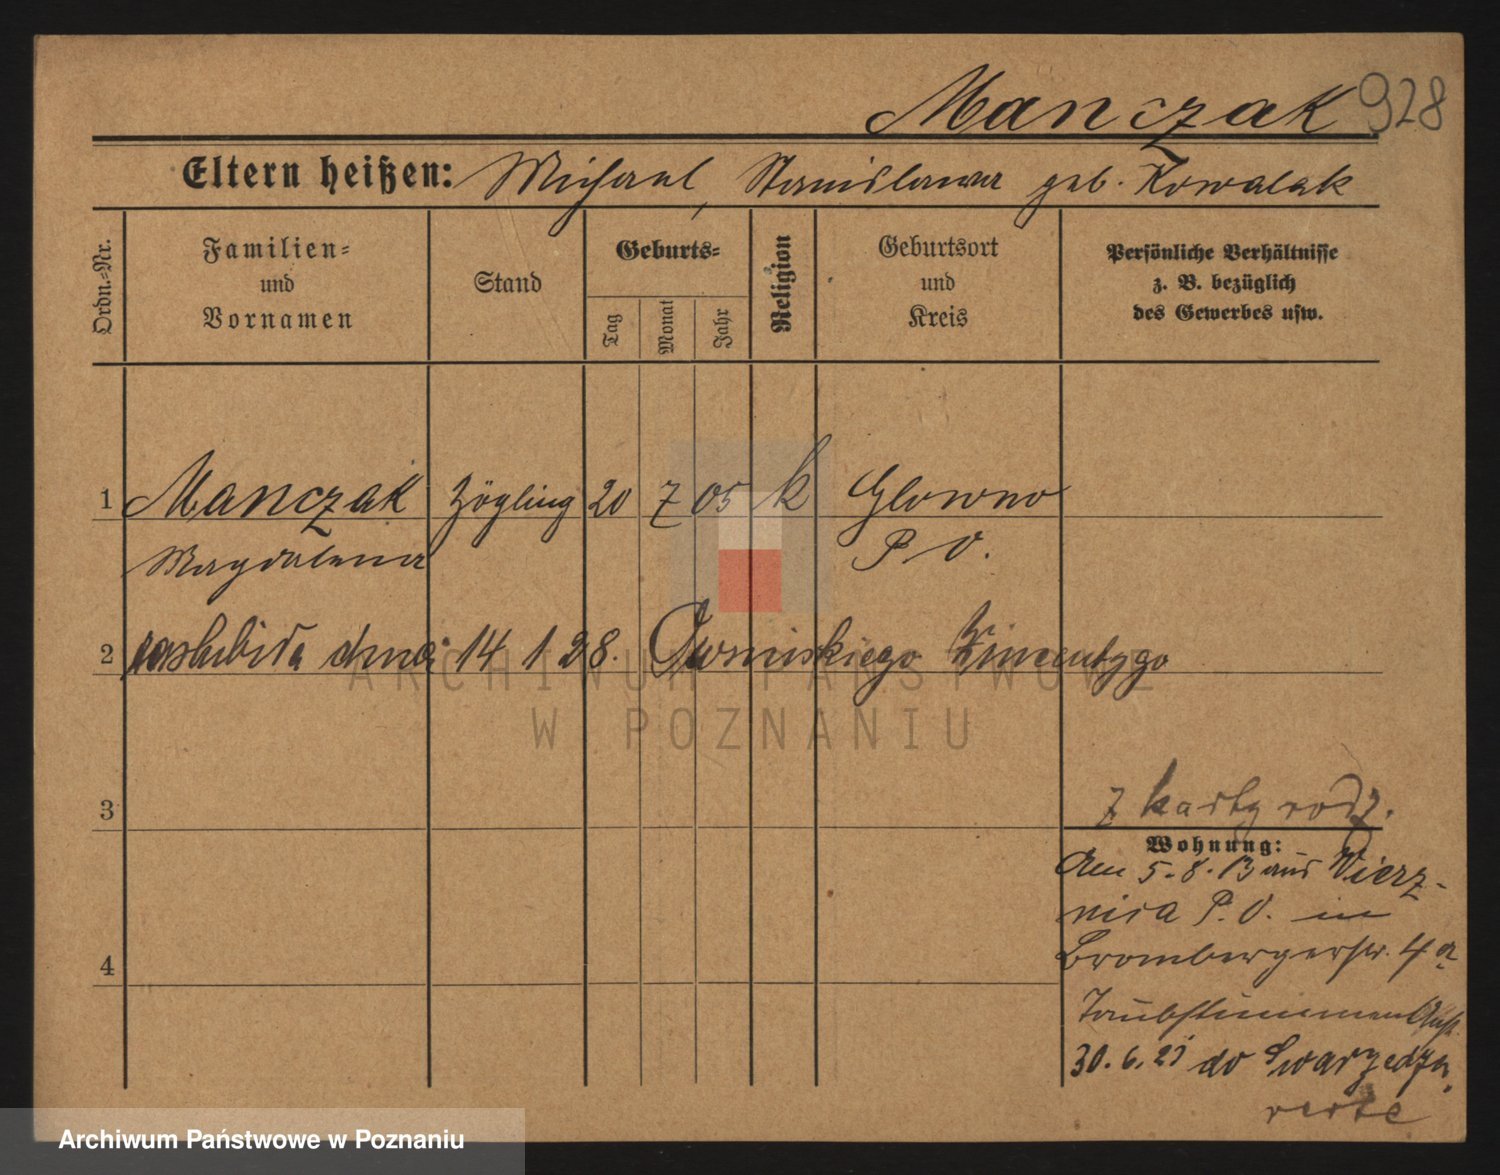 Manczak 928
Eltern heißen: Michael, Stanislawa geb. Kowalak
Ordn.-Nr.
Familien-
und
Vornamen
Stand
Geburts-
Tag
Monat
Jahr
Religion
Geburtsort
und
Kreis
Persönliche Verhältnisse
z. B. bezüglich
des Gewerbes usw.
1 Manczak Zögling 20 7 05 k Glowno
Magdalena P O.
2 zaślubiła dnia 14 1 28. Wincentygo
3
z karty rodz.
Wohnung:
Am 5.8.13 aus Wierz-
nica P.O. in
Brombergerstr. 4a
4
Taubstummen Anst.
30.6.21 do Swarzędza
ARCHIWUM PAŃSTWOWE
W POZNANIU
Archiwum Państwowe w Poznaniu